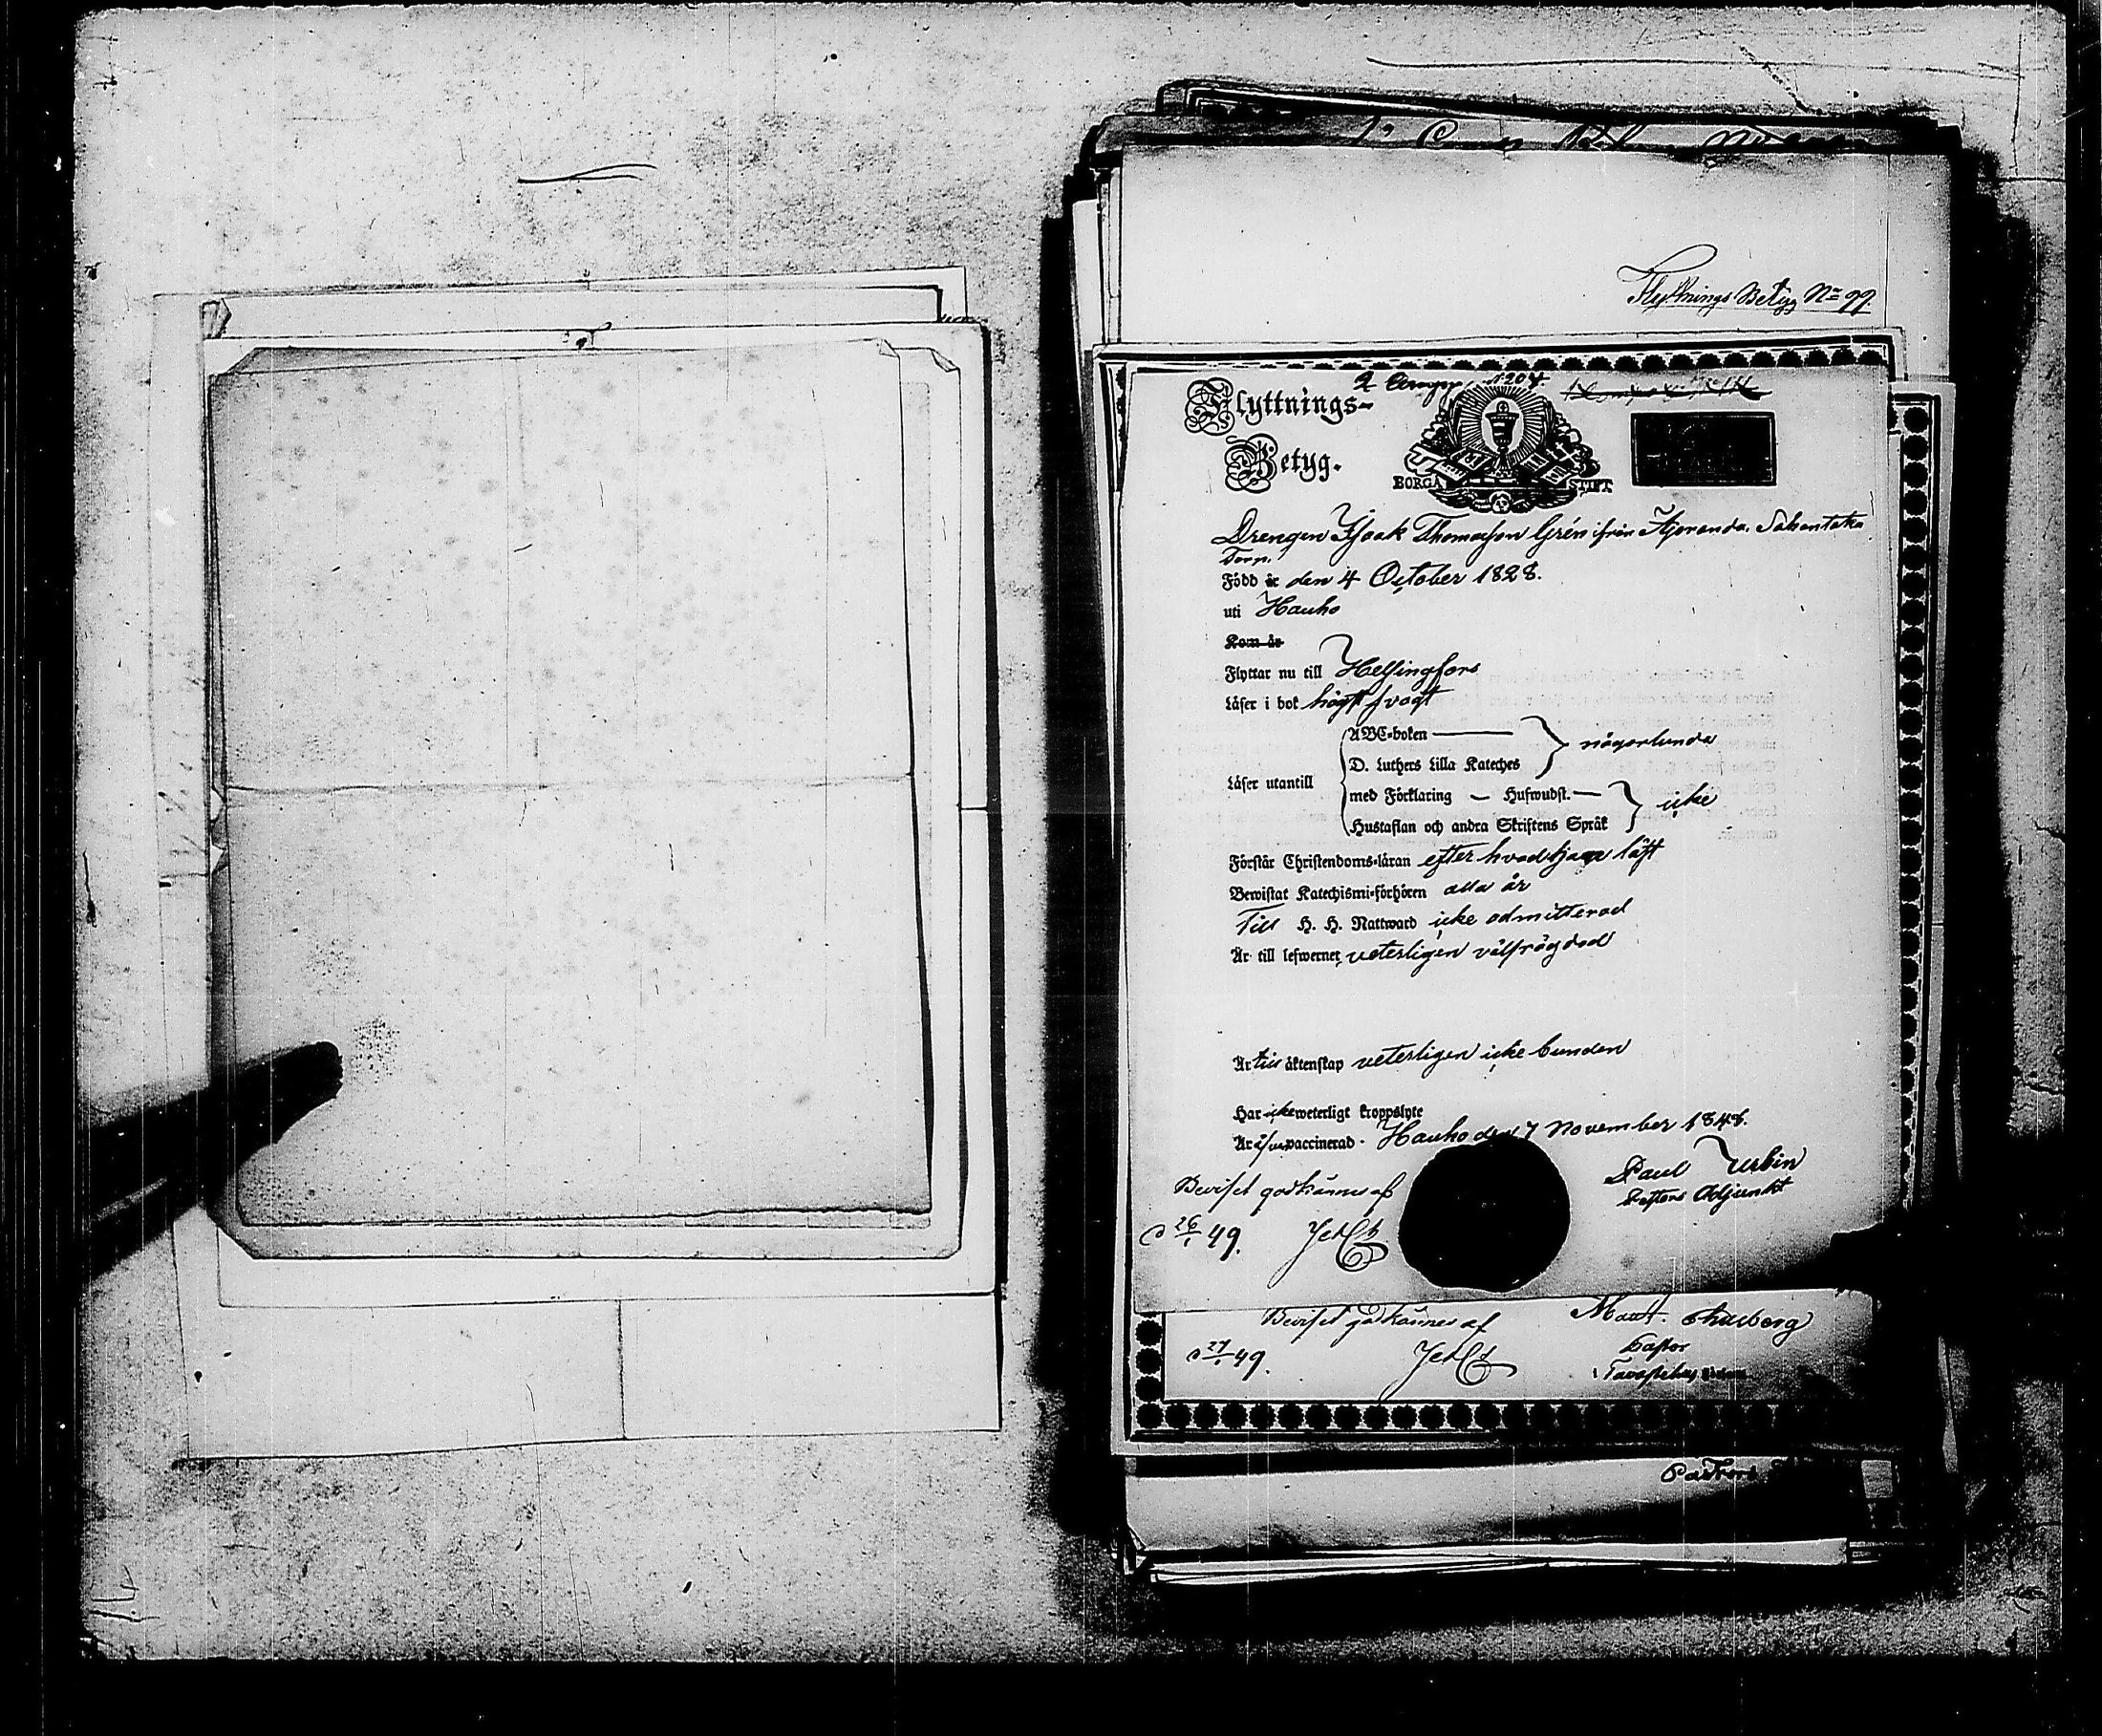 Flyttnings Betyg No 99.
2 Comp N 204.
Flyttnings-
Betyg.
BORGÅ STIFT.
Drengen Isaak Thomasson Grén från Sahantaka
Torp.
Född år den 4 October 1828.
uti Hauho
Kom år
Flyttar nu till Helsingfors
Läser i bok högst svagt
ABC-boken
någorlunda
D. Luthers Lilla Kateches
Läser utantill
med Förklaring — Hufwudst. —
icke
Hustaflan och andra Skriftens Språk
Förstår Christendoms-läran efter hvad han läst
Bewistat Katechismi-förhören alla år
Till H. H. Nattward icke admitterad
Är till lefwernet veterligen välfrägdad
Är till äktenskap veterligen icke bunden
Har icke weterligt kroppslyte
Är vaccinerad. Hauho den 7 November 1848.
Paul Urbin
Pastors Adjunkt
Beviset godkännes af
d 26/1 49.
Beviset godkännes af
d 27/1 49.
Pastor
Tavastehus
Pastors